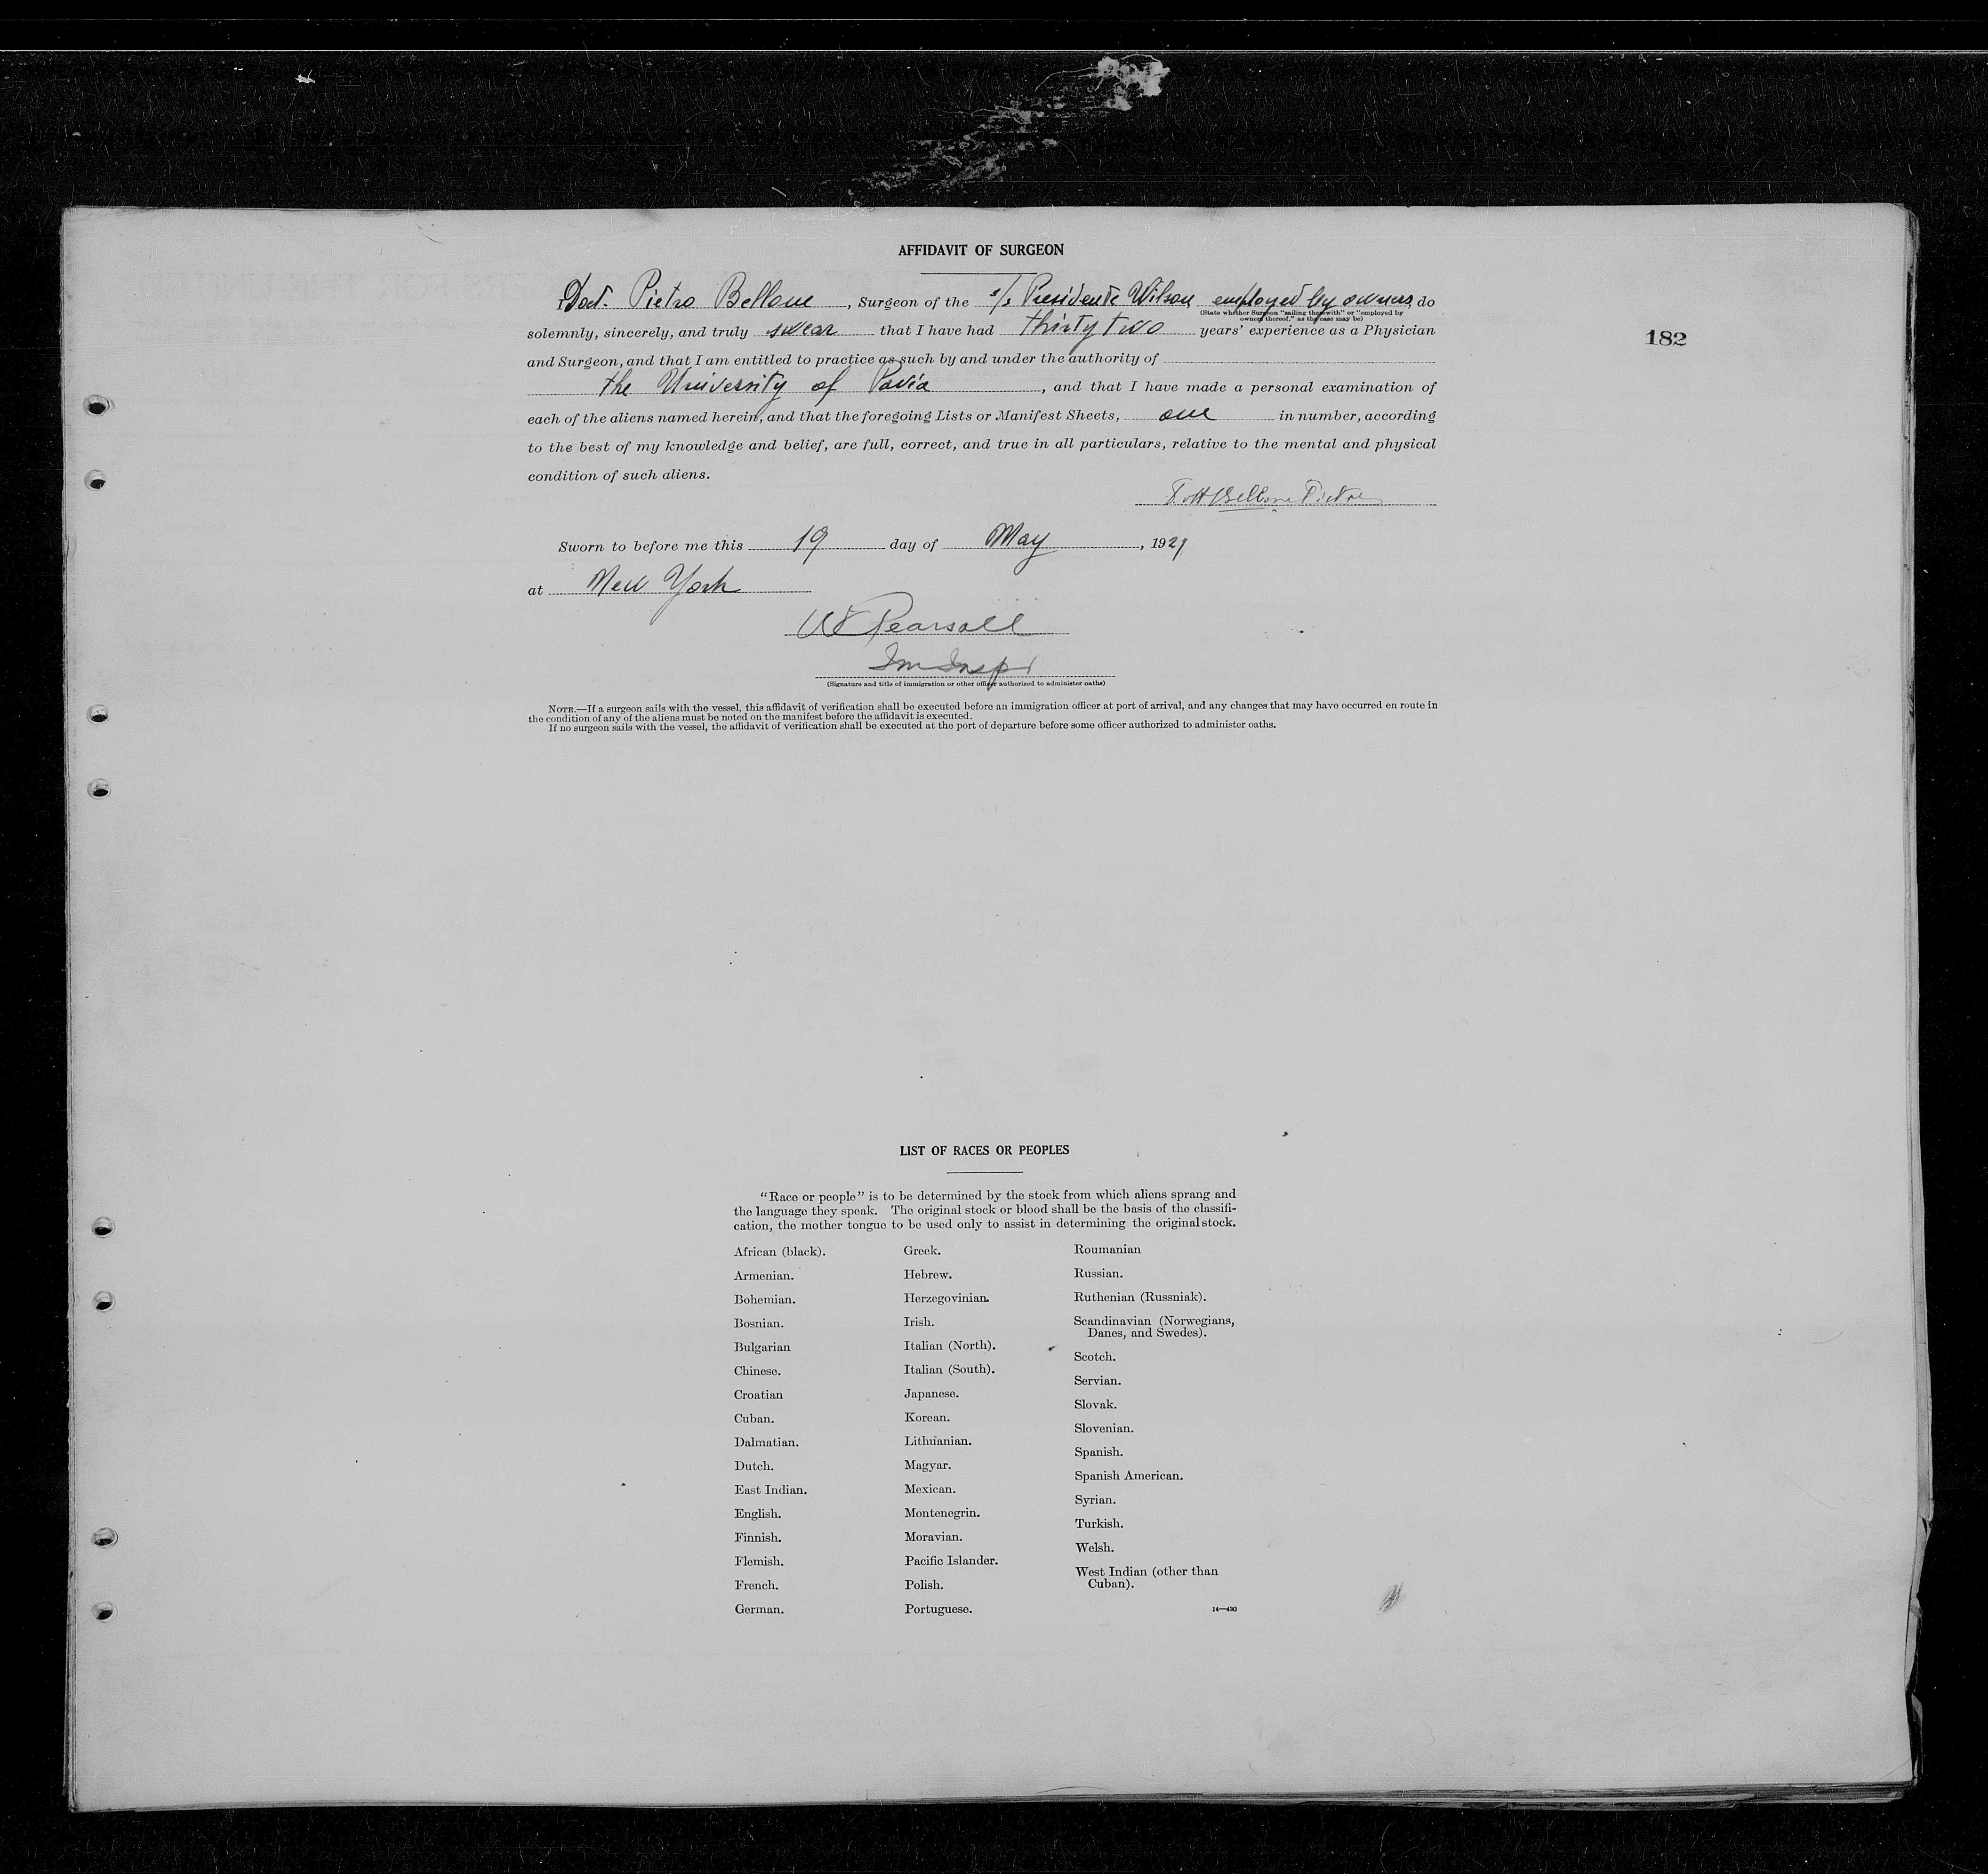 AFFIDAVIT OF SURGEON
I Doct. Pietro Bellone, Surgeon of the s/s Presidente Wilson employed by owners, do
(State whether Surgeon "sailing therewith" or "employed by
owners thereof," as the case may be)
solemnly, sincerely, and truly swear that I have had thirty two years' experience as a Physician
182
and Surgeon, and that I am entitled to practice as such by and under the authority of
the University of Pavia, and that I have made a personal examination of
each of the aliens named herein, and that the foregoing Lists or Manifest Sheets, one in number, according
to the best of my knowledge and belief, are full, correct, and true in all particulars, relative to the mental and physical
condition of such aliens.
Dott Bellone Pietro
Sworn to before me this 19 day of May, 1921
at New York
Pearsall
Im Insp
(Signature and title of immigration or other officer authorized to administer oaths)
NOTE.—If a surgeon sails with the vessel, this affidavit of verification shall be executed before an immigration officer at port of arrival, and any changes that may have occurred en route in
the condition of any of the aliens must be noted on the manifest before the affidavit is executed.
If no surgeon sails with the vessel, the affidavit of verification shall be executed at the port of departure before some officer authorized to administer oaths.
LIST OF RACES OR PEOPLES
"Race or people" is to be determined by the stock from which aliens sprang and
the language they speak. The original stock or blood shall be the basis of the classifi-
cation, the mother tongue to be used only to assist in determining the original stock.
African (black).
Armenian.
Bohemian.
Bosnian.
Bulgarian
Chinese.
Croatian
Cuban.
Dalmatian.
Dutch.
East Indian.
English.
Finnish.
Flemish.
French.
German.
Greek.
Hebrew.
Herzegovinian.
Irish.
Italian (North).
Italian (South).
Japanese.
Korean.
Lithuanian.
Magyar.
Mexican.
Montenegrin.
Moravian.
Pacific Islander.
Polish.
Portuguese.
Roumanian
Russian.
Ruthenian (Russniak).
Scandinavian (Norwegians,
Danes, and Swedes).
Scotch.
Servian.
Slovak.
Slovenian.
Spanish.
Spanish American.
Syrian.
Turkish.
Welsh.
West Indian (other than
Cuban).
14—430